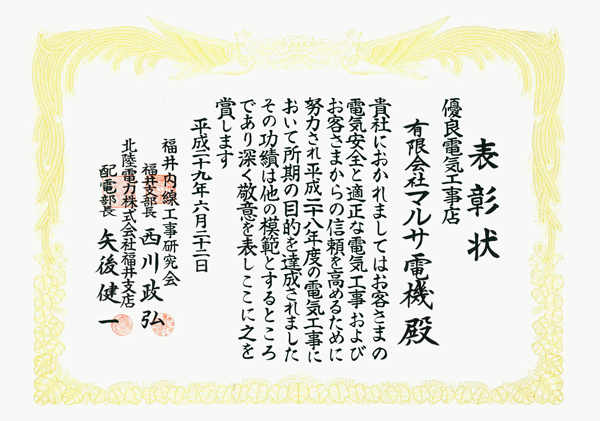 表彰状
優良電気工事店
有限会社マルサ電機殿
貴社におかれましてはお客さまの
電気安全と適正な電気工事および
お客さまからの信頼を高めるために
努力され平成二十八年度の電気工事に
おいて所期の目的を達成されました
その功績は他の模範とするところ
であり深く敬意を表しここに之を
賞します
平成二十九年六月二十二日
福井内線工事研究会
福井支部長 西川政弘
北陸電力株式会社福井支店
配電部長 矢後健一